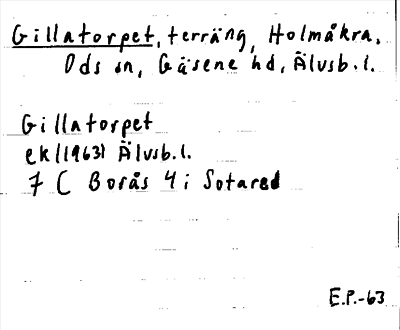 Gillatorpet, terräng, Holmåkra,
Ods sn, Gäsene hd, Älvsb. l.
Gillatorpet
ek/(1963) Älvsb. l.
7 C Borås 4 i Sotared
E.P.-63